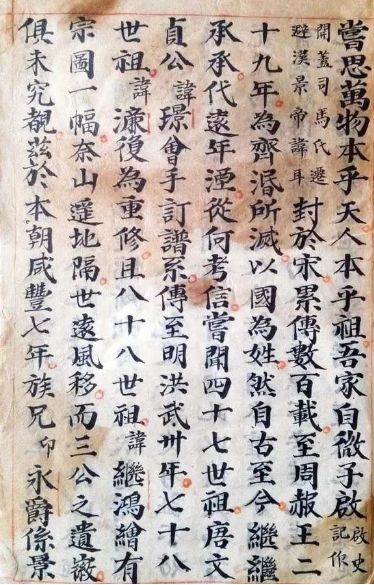 嘗思萬物本乎天人本乎祖吾家自微子啟啟史記作
開蓋司馬氏遷避漢景帝諱耳封於宋累傳數百載至周赧王二
十九年為齊湣所滅以國為姓然自古至今繼繼
承承代遠年湮從何考信嘗聞四十七世祖唐文
貞公諱璟曾手訂譜系傳至明洪武卅年七十八
世祖諱濂復為重修且八十八世祖諱繼鴻繪有
宗圖一幅奈山遥地隔世遠風移而三公之遺
俱未究覩茲於本朝咸豐七年族兄印永爵係景